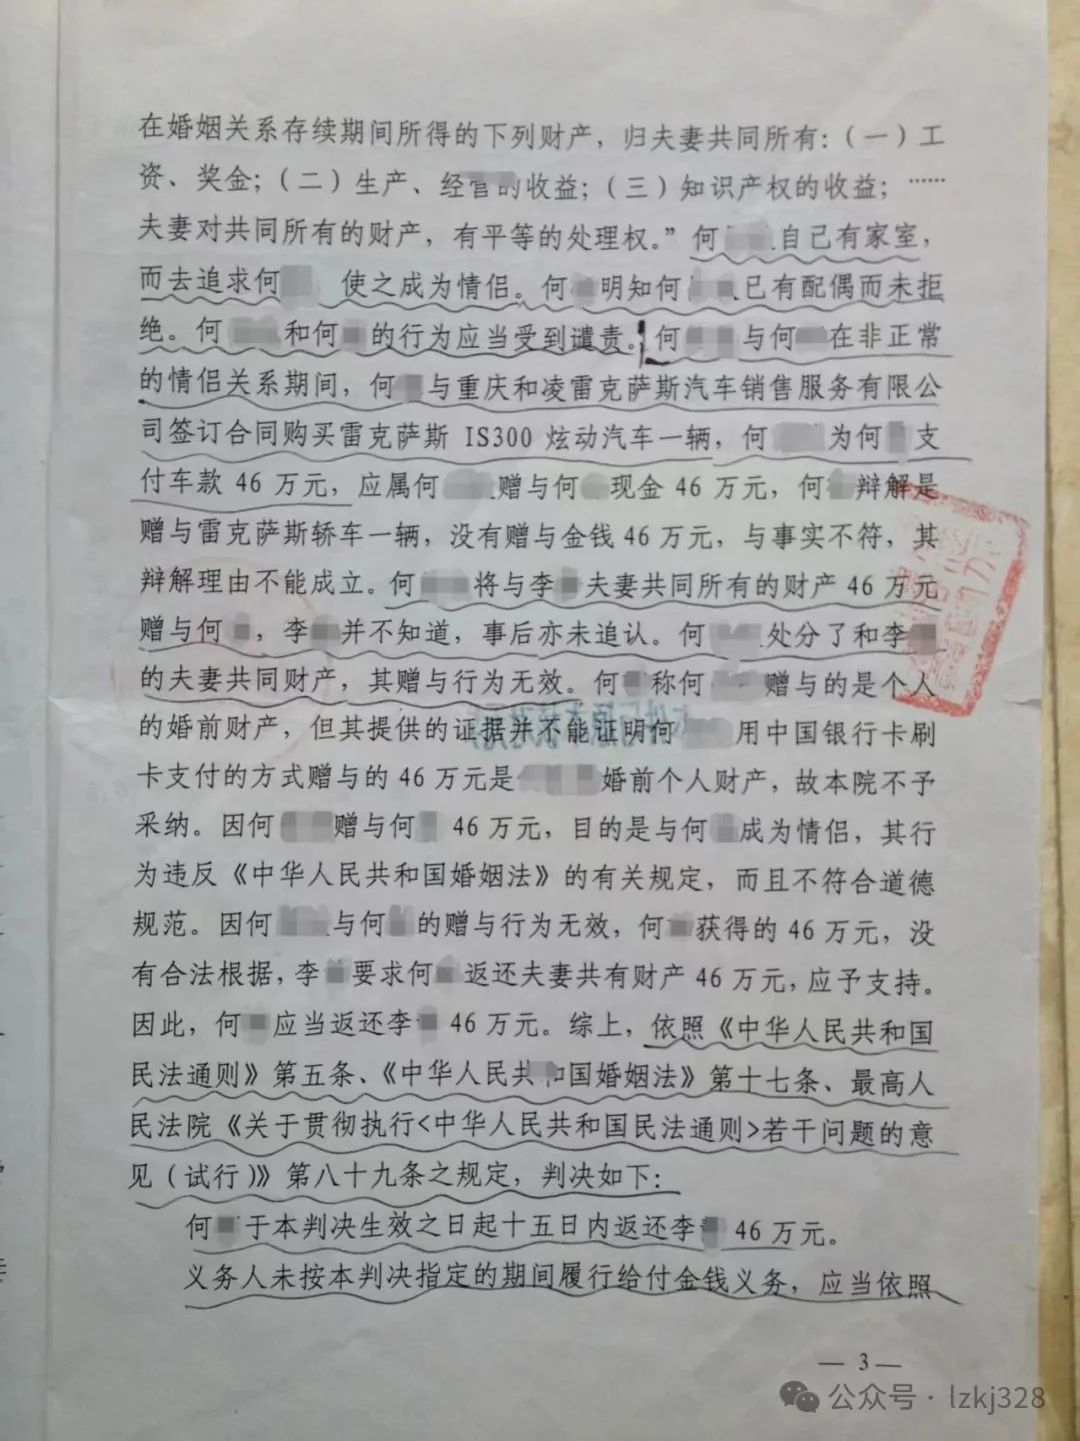 在婚姻关系存续期间所得的下列财产，归夫妻共同所有：（一）工
资、奖金；（二）生产、经营的收益；（三）知识产权的收益；……
夫妻对共同所有的财产，有平等的处理权。”何 自己有家室，
而去追求何 使之成为情侣。何 明知何 已有配偶而未拒
绝。何 和何 的行为应当受到谴责。何 与何 在非正常
的情侣关系期间，何 与重庆和凌雷克萨斯汽车销售服务有限公
司签订合同购买雷克萨斯 IS300 炫动汽车一辆，何 为何 支
付车款 46 万元，应属何 赠与何 现金 46 万元，何 辩解是
赠与雷克萨斯轿车一辆，没有赠与金钱 46 万元，与事实不符，其
辩解理由不能成立。何 将与李 夫妻共同所有的财产 46 万元
赠与何 ，李 并不知道，事后亦未追认。何 处分了和李
的夫妻共同财产，其赠与行为无效。何 称何 赠与的是个人
的婚前财产，但其提供的证据并不能证明何 用中国银行卡刷
卡支付的方式赠与的 46 万元是 婚前个人财产，故本院不予
采纳。因何 赠与何 46 万元，目的是与何 成为情侣，其行
为违反《中华人民共和国婚姻法》的有关规定，而且不符合道德
规范。因何 与何 的赠与行为无效，何 获得的 46 万元，没
有合法根据，李 要求何 返还夫妻共有财产 46 万元，应予支持。
因此，何 应当返还李 46 万元。综上，依照《中华人民共和国
民法通则》第五条、《中华人民共和国婚姻法》第十七条、最高人
民法院《关于贯彻执行<中华人民共和国民法通则>若干问题的意
见（试行）》第八十九条之规定，判决如下：
何 于本判决生效之日起十五日内返还李 46 万元。
义务人未按本判决指定的期间履行给付金钱义务，应当依照
— 3 —
公众号 · lzkj328